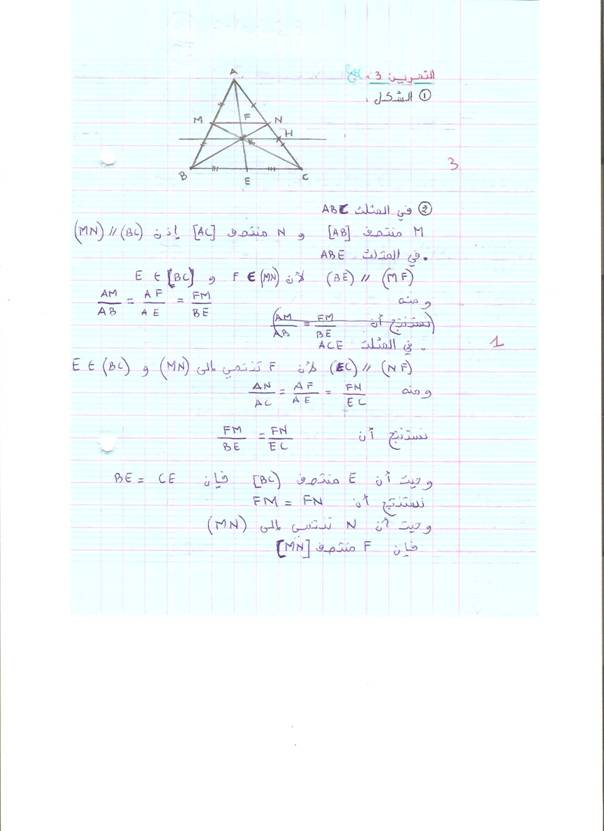 التمرين 3:
① الشكل.
A
M F N
H
B E C
3
② في المثلث ABC
M منتصف [AB] و N منتصف [AC] إذن (MN) // (BC)
. في المثلث ABE
(MF) // (BE) لأن F ∈ (MN) و E ∈ [BC]
ومنه AM/AB = AF/AE = FM/BE
(نستنتج أن AM/AB = FM/BE)
1
. في المثلث ACE
(NF) // (EC) لأن F تنتمي إلى (MN) و E ∈ (BC)
ومنه AN/AC = AF/AE = FN/EC
نستنتج أن FM/BE = FN/EC
وحيث أن E منتصف [BC] فإن BE = CE
نستنتج أن FM = FN
وحيث أن N تنتمي إلى (MN)
فإن F منتصف [MN]